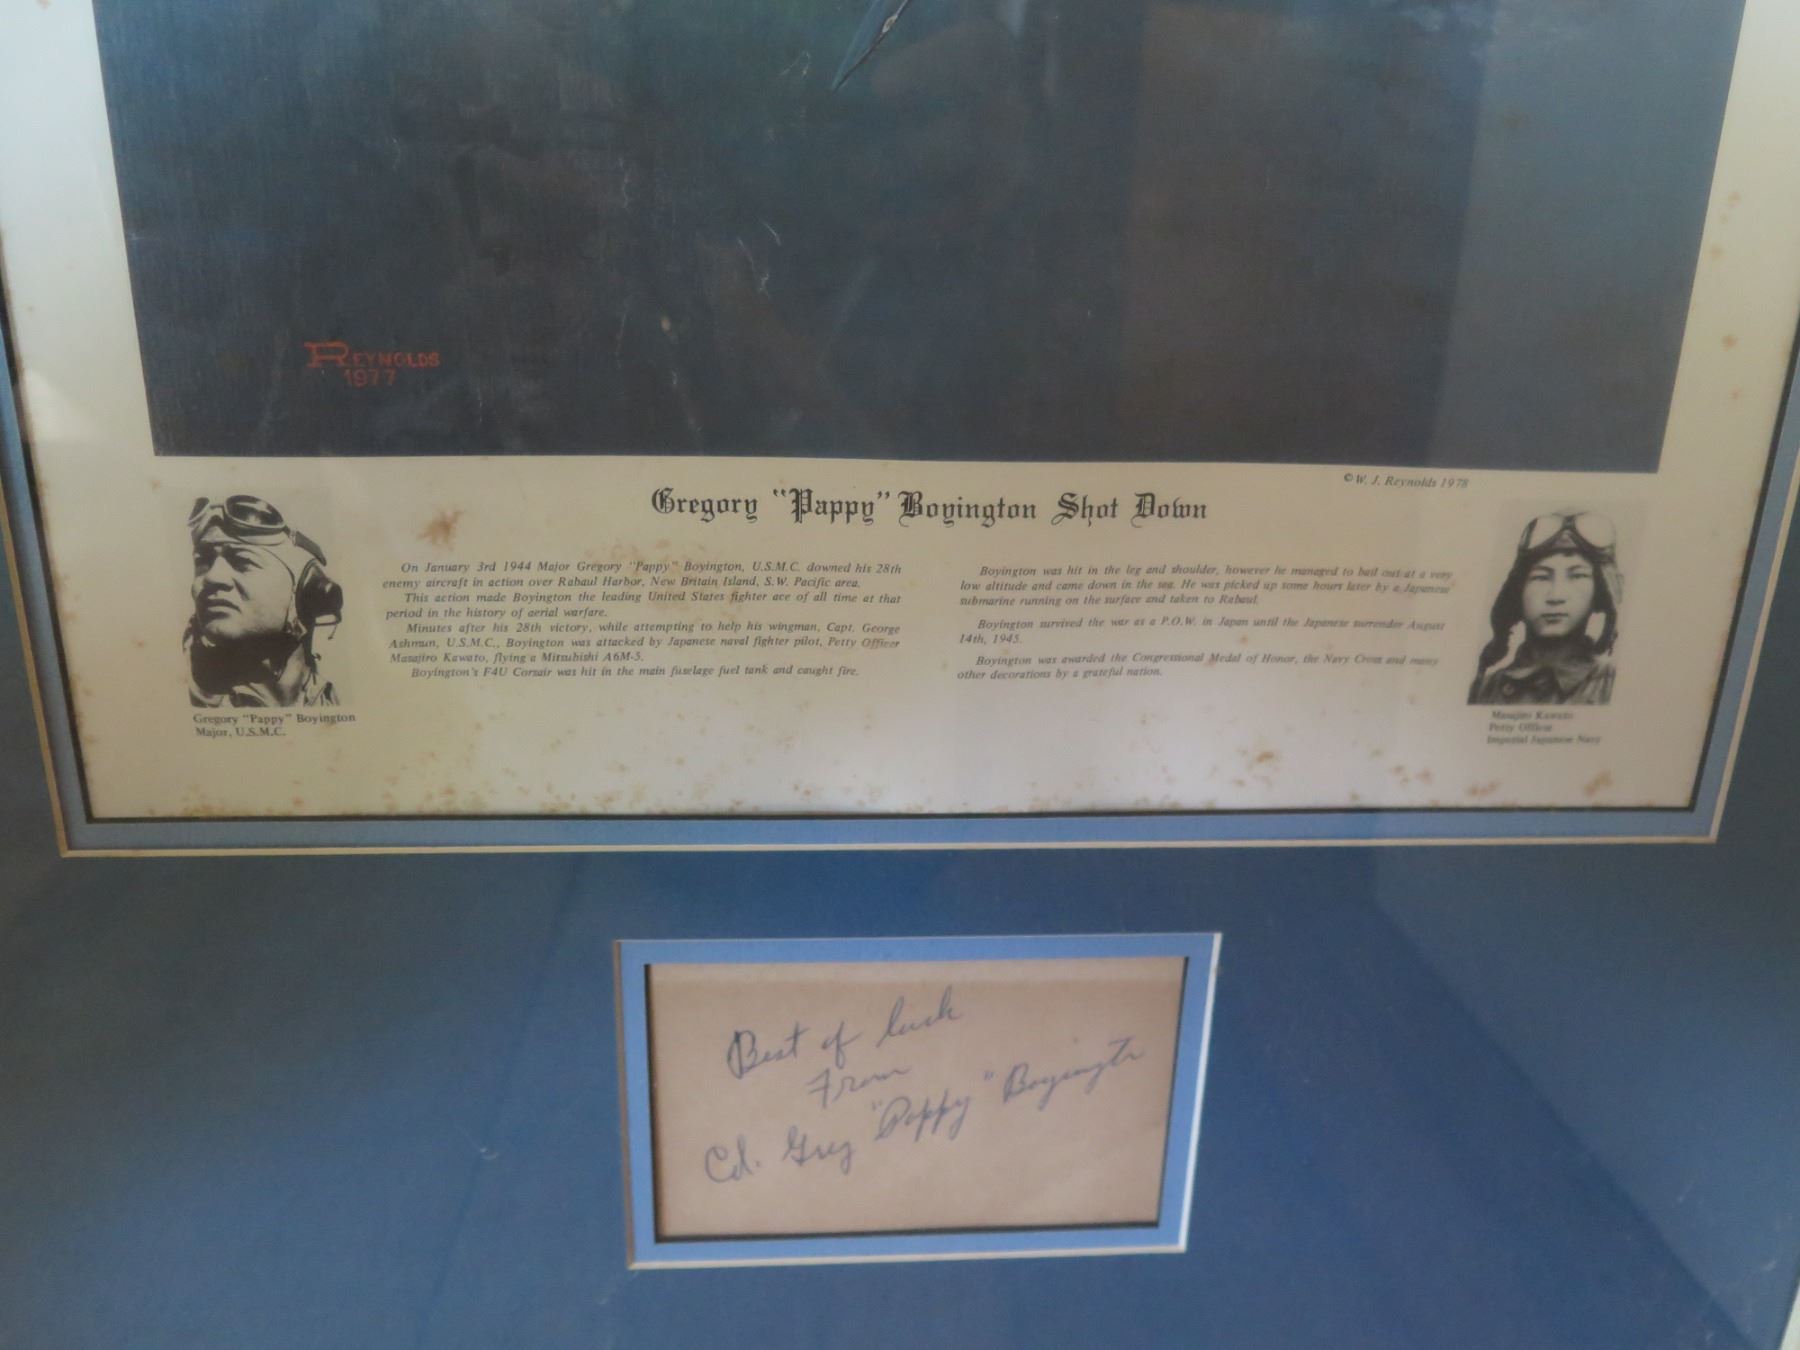 REYNOLDS
1977
© W. J. Reynolds 1978
Gregory "Pappy" Boyington Shot Down
On January 3rd 1944 Major Gregory "Pappy" Boyington, U.S.M.C. downed his 28th
enemy aircraft in action over Rabaul Harbor, New Britain Island, S.W. Pacific area.
This action made Boyington the leading United States fighter ace of all time at that
period in the history of aerial warfare.
Minutes after his 28th victory, while attempting to help his wingman, Capt. George
Ashmun, U.S.M.C., Boyington was attacked by Japanese naval fighter pilot, Petty Officer
Masajiro Kawato, flying a Mitsubishi A6M-5.
Boyington's F4U Corsair was hit in the main fuselage fuel tank and caught fire.
Boyington was hit in the leg and shoulder, however he managed to bail out at a very
low altitude and came down in the sea. He was picked up some hours later by a Japanese
submarine running on the surface and taken to Rabaul.
Boyington survived the war as a P.O.W. in Japan until the Japanese surrender August
14th, 1945.
Boyington was awarded the Congressional Medal of Honor, the Navy Cross and many
other decorations by a grateful nation.
Gregory "Pappy" Boyington
Major, U.S.M.C.
Masajiro Kawato
Petty Officer
Imperial Japanese Navy
Best of luck
From
Col. Greg "Pappy" Boyington